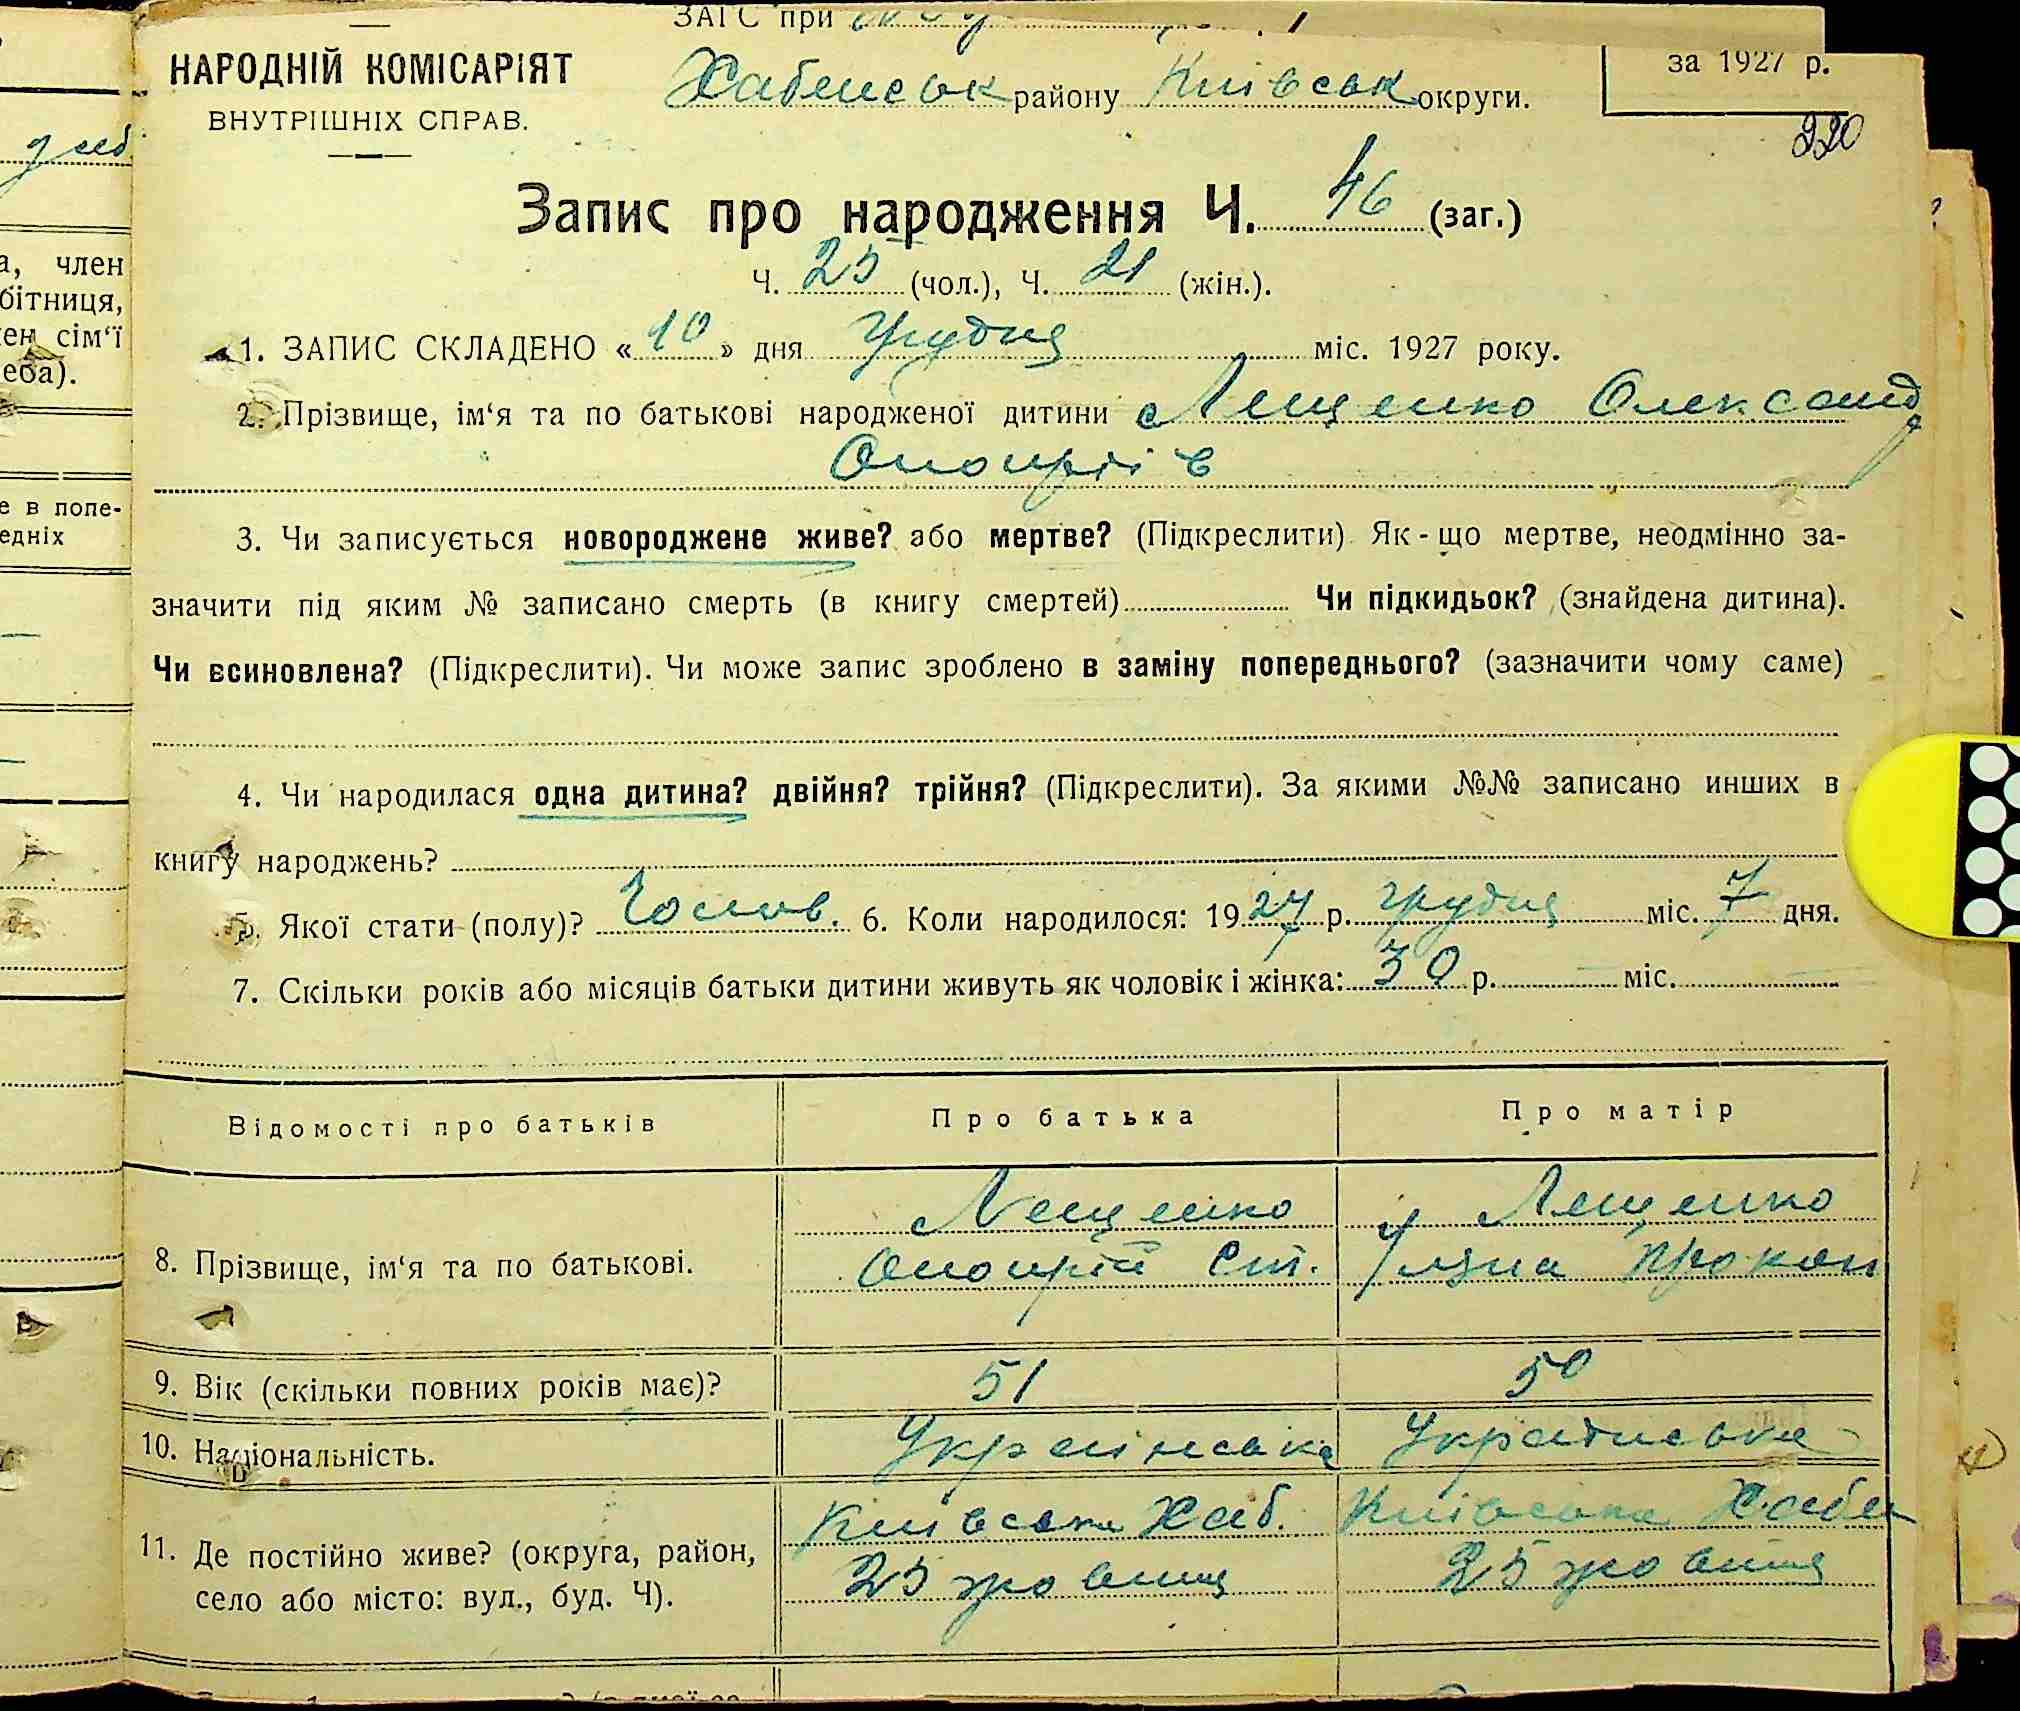 ЗАГС при
НАРОДНІЙ КОМІСАРІЯТ
ВНУТРІШНІХ СПРАВ.
Хабенськ району Київськ округи.
за 1927 р.
220
Запис про народження Ч. 46 (заг.)
Ч. 25 (чол.), Ч. 21 (жін.).
1. ЗАПИС СКЛАДЕНО « 10 » дня грудня міс. 1927 року.
2. Прізвище, ім‘я та по батькові народженої дитини Лещенко Олександр
Онопріїв
3. Чи записується новороджене живе? або мертве? (Підкреслити). Як-що мертве, неодмінно за-
значити під яким № записано смерть (в книгу смертей) Чи підкидьок? (знайдена дитина).
Чи всиновлена? (Підкреслити). Чи може запис зроблено в заміну попереднього? (зазначити чому саме)
4. Чи народилася одна дитина? двійня? трійня? (Підкреслити). За якими №№ записано инших в
книгу народжень?
5. Якої стати (полу)? Чолов. 6. Коли народилося: 1927 р. грудня міс. 7 дня.
7. Скільки років або місяців батьки дитини живуть як чоловік і жінка: 30 р. — міс.
Відомості про батьків Про батька Про матір
8. Прізвище, ім‘я та по батькові. Лещенко Лещенко
Онопрій Ст. Уляна Прокоп
9. Вік (скільки повних років має)? 51 50
10. Національність. Українська Українська
11. Де постійно живе? (округа, район, Київська Хаб. Київська Хабен
село або місто: вул., буд. Ч). 25 жовтня 25 жовтня
а, член
бітниця,
ен сім‘ї
еба).
е в попе-
едніх